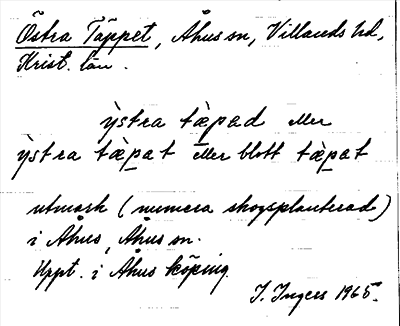 Östra Täppet, Åhus sn, Villands hd,
Krist. län.
ỳstra tæ̀pad eller
ỳstra tæ̀pat eller blott tæ̀pat
utmark (numera skogsplanterad)
i Åhus, Åhus sn.
Uppt. i Åhus köping.
I. Ingers 1965.